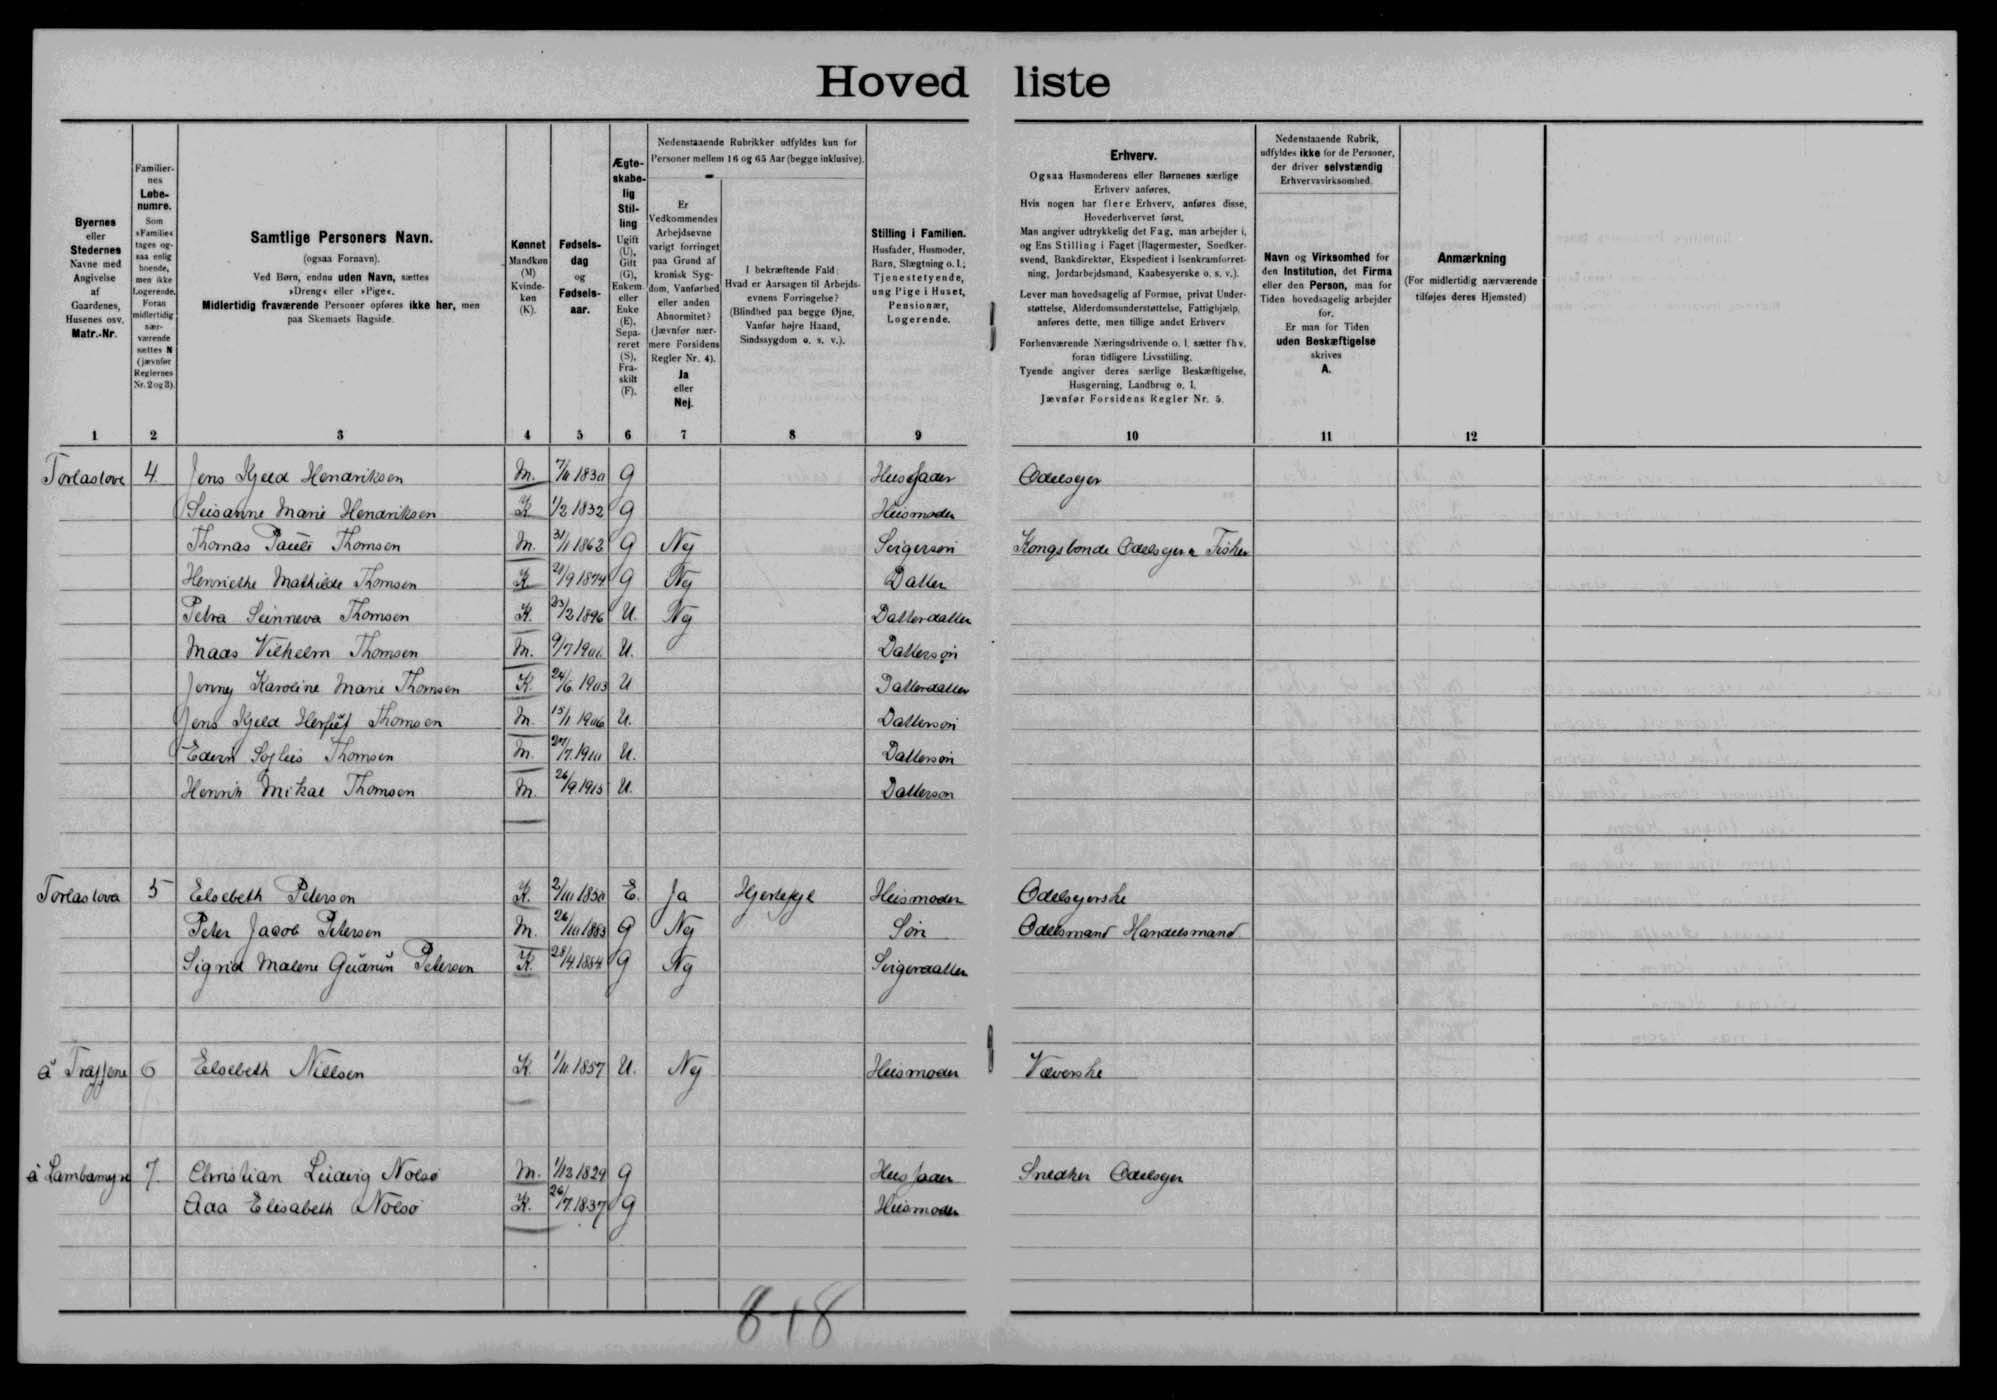 Hoved liste
Byernes eller Stedernes Navne med Angivelse af Gaardenes, Husenes osv. Matr.-Nr.
Familiernes Løbenumre. Som »Familie« tages ogsaa enlig boende, men ikke Logerende. Foran midlertidig nærværende sættes N (jævnfør Reglernes Nr. 2 og 3).
Samtlige Personers Navn.
(ogsaa Fornavn).
Ved Børn, endnu uden Navn, sættes
»Dreng« eller »Pige«.
Midlertidig fraværende Personer opføres ikke her, men
paa Skemaets Bagside.
Kønnet Mandkøn (M) Kvindekøn (K).
Fødselsdag og Fødselsaar.
Ægteskabelig Stilling Ugift (U), Gift (G), Enkem. eller Enke (E), Separeret (S), Fraskilt (F).
Nedenstaaende Rubrikker udfyldes kun for
Personer mellem 16 og 65 Aar (begge inklusive).
Er Vedkommendes Arbejdsevne varigt forringet paa Grund af kronisk Sygdom, Vanførhed eller anden Abnormitet? (Jævnfør nærmere Forsidens Regler Nr. 4). Ja eller Nej.
I bekræftende Fald: Hvad er Aarsagen til Arbejdsevnens Forringelse? (Blindhed paa begge Øjne, Vanfør højre Haand, Sindssygdom o. s. v.).
Stilling i Familien. Husfader, Husmoder, Barn, Slægtning o. l.; Tjenestetyende, ung Pige i Huset, Pensionær, Logerende.
Erhverv.
Ogsaa Husmoderens eller Børnenes særlige
Erhverv anføres.
Hvis nogen har flere Erhverv, anføres disse,
Hovederhvervet først.
Man angiver udtrykkelig det Fag, man arbejder i,
og Ens Stilling i Faget (Bagermester, Snedkersvend, Bankdirektør, Ekspedient i Isenkramforretning, Jordarbejdsmand, Kaabesyerske o. s. v.).
Lever man hovedsagelig af Formue, privat Understøttelse, Alderdomsunderstøttelse, Fattighjælp,
anføres dette, men tillige andet Erhverv
Forhenværende Næringsdrivende o. l. sætter fhv.
foran tidligere Livsstilling.
Tyende angiver deres særlige Beskæftigelse,
Husgerning, Landbrug o. l.
Jævnfør Forsidens Regler Nr. 5.
Nedenstaaende Rubrik,
udfyldes ikke for de Personer,
der driver selvstændig
Erhvervsvirksomhed.
Navn og Virksomhed for
den Institution, det Firma
eller den Person, man for
Tiden hovedsagelig arbejder
for.
Er man for Tiden
uden Beskæftigelse
skrives
A.
Anmærkning
(For midlertidig nærværende
tilføjes deres Hjemsted)
1 2 3 4 5 6 7 8 9 10 11 12
Torlastova 4. Jens Kjeld Hendriksen M. 1830 G Husfader Odelsejer
Susanne Marie Hendriksen K 1/2 1832 G Husmoder
Thomas Pauli Thomsen M. 31/1 1862 G Nej Svigersøn Kongsbonde Odelsejer Fisker
Henriethe Mathilde Thomsen K 21/9 1874 G Nej Datter
Petra Sunneva Thomsen K. 23/2 1896 U. Nej Datterdatter
Maas Vilhelm Thomsen M. 9/7 U. Dattersøn
Jenny Karoline Marie Thomsen K. 24/6 1903 U Datterdatter
Jens Kjeld Thomsen M. 15/1 1906 U. Dattersøn
Sofus Thomsen M. 27/7 1910 U. Dattersøn
Henrik Mikal Thomsen M. 26/9 1915 U. Dattersøn
Torlastova 5 Elsebeth Petersen K. 1850 E. Ja Hjertefejl Husmoder Odelsejerske
Peter Jacob Petersen M. 1883 G Nej Søn Odelsmand Handelsmand
Sigrid Malene Petersen K. 28/4 1884 G Nej Svigerdatter
6 Elsebeth Nielsen K. 1857 U. Nej Husmoder Væverske
á Lambamyre 7. Christian Ludvig Nolsø M. 1/12 1829 G Husfader Snedker Odelsejer
Ada Elisabeth Nolsø K. 26/7 1837 G Husmoder
8+8